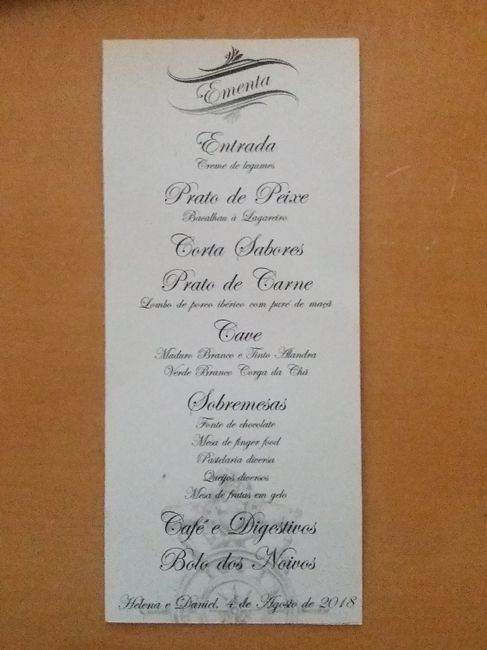 Ementa
Entrada
Creme de legumes
Prato de Peixe
Bacalhau à Lagareiro
Corta Sabores
Prato de Carne
Lombo de porco ibérico com puré de maçã
Cave
Maduro Branco e Tinto Alandra
Verde Branco Corga da Chã
Sobremesas
Fonte de chocolate
Mesa de finger food
Pastelaria diversa
Queijos diversos
Mesa de frutas em gelo
Café e Digestivos
Bolo dos Noivos
Helena e Daniel, 4 de Agosto de 2018